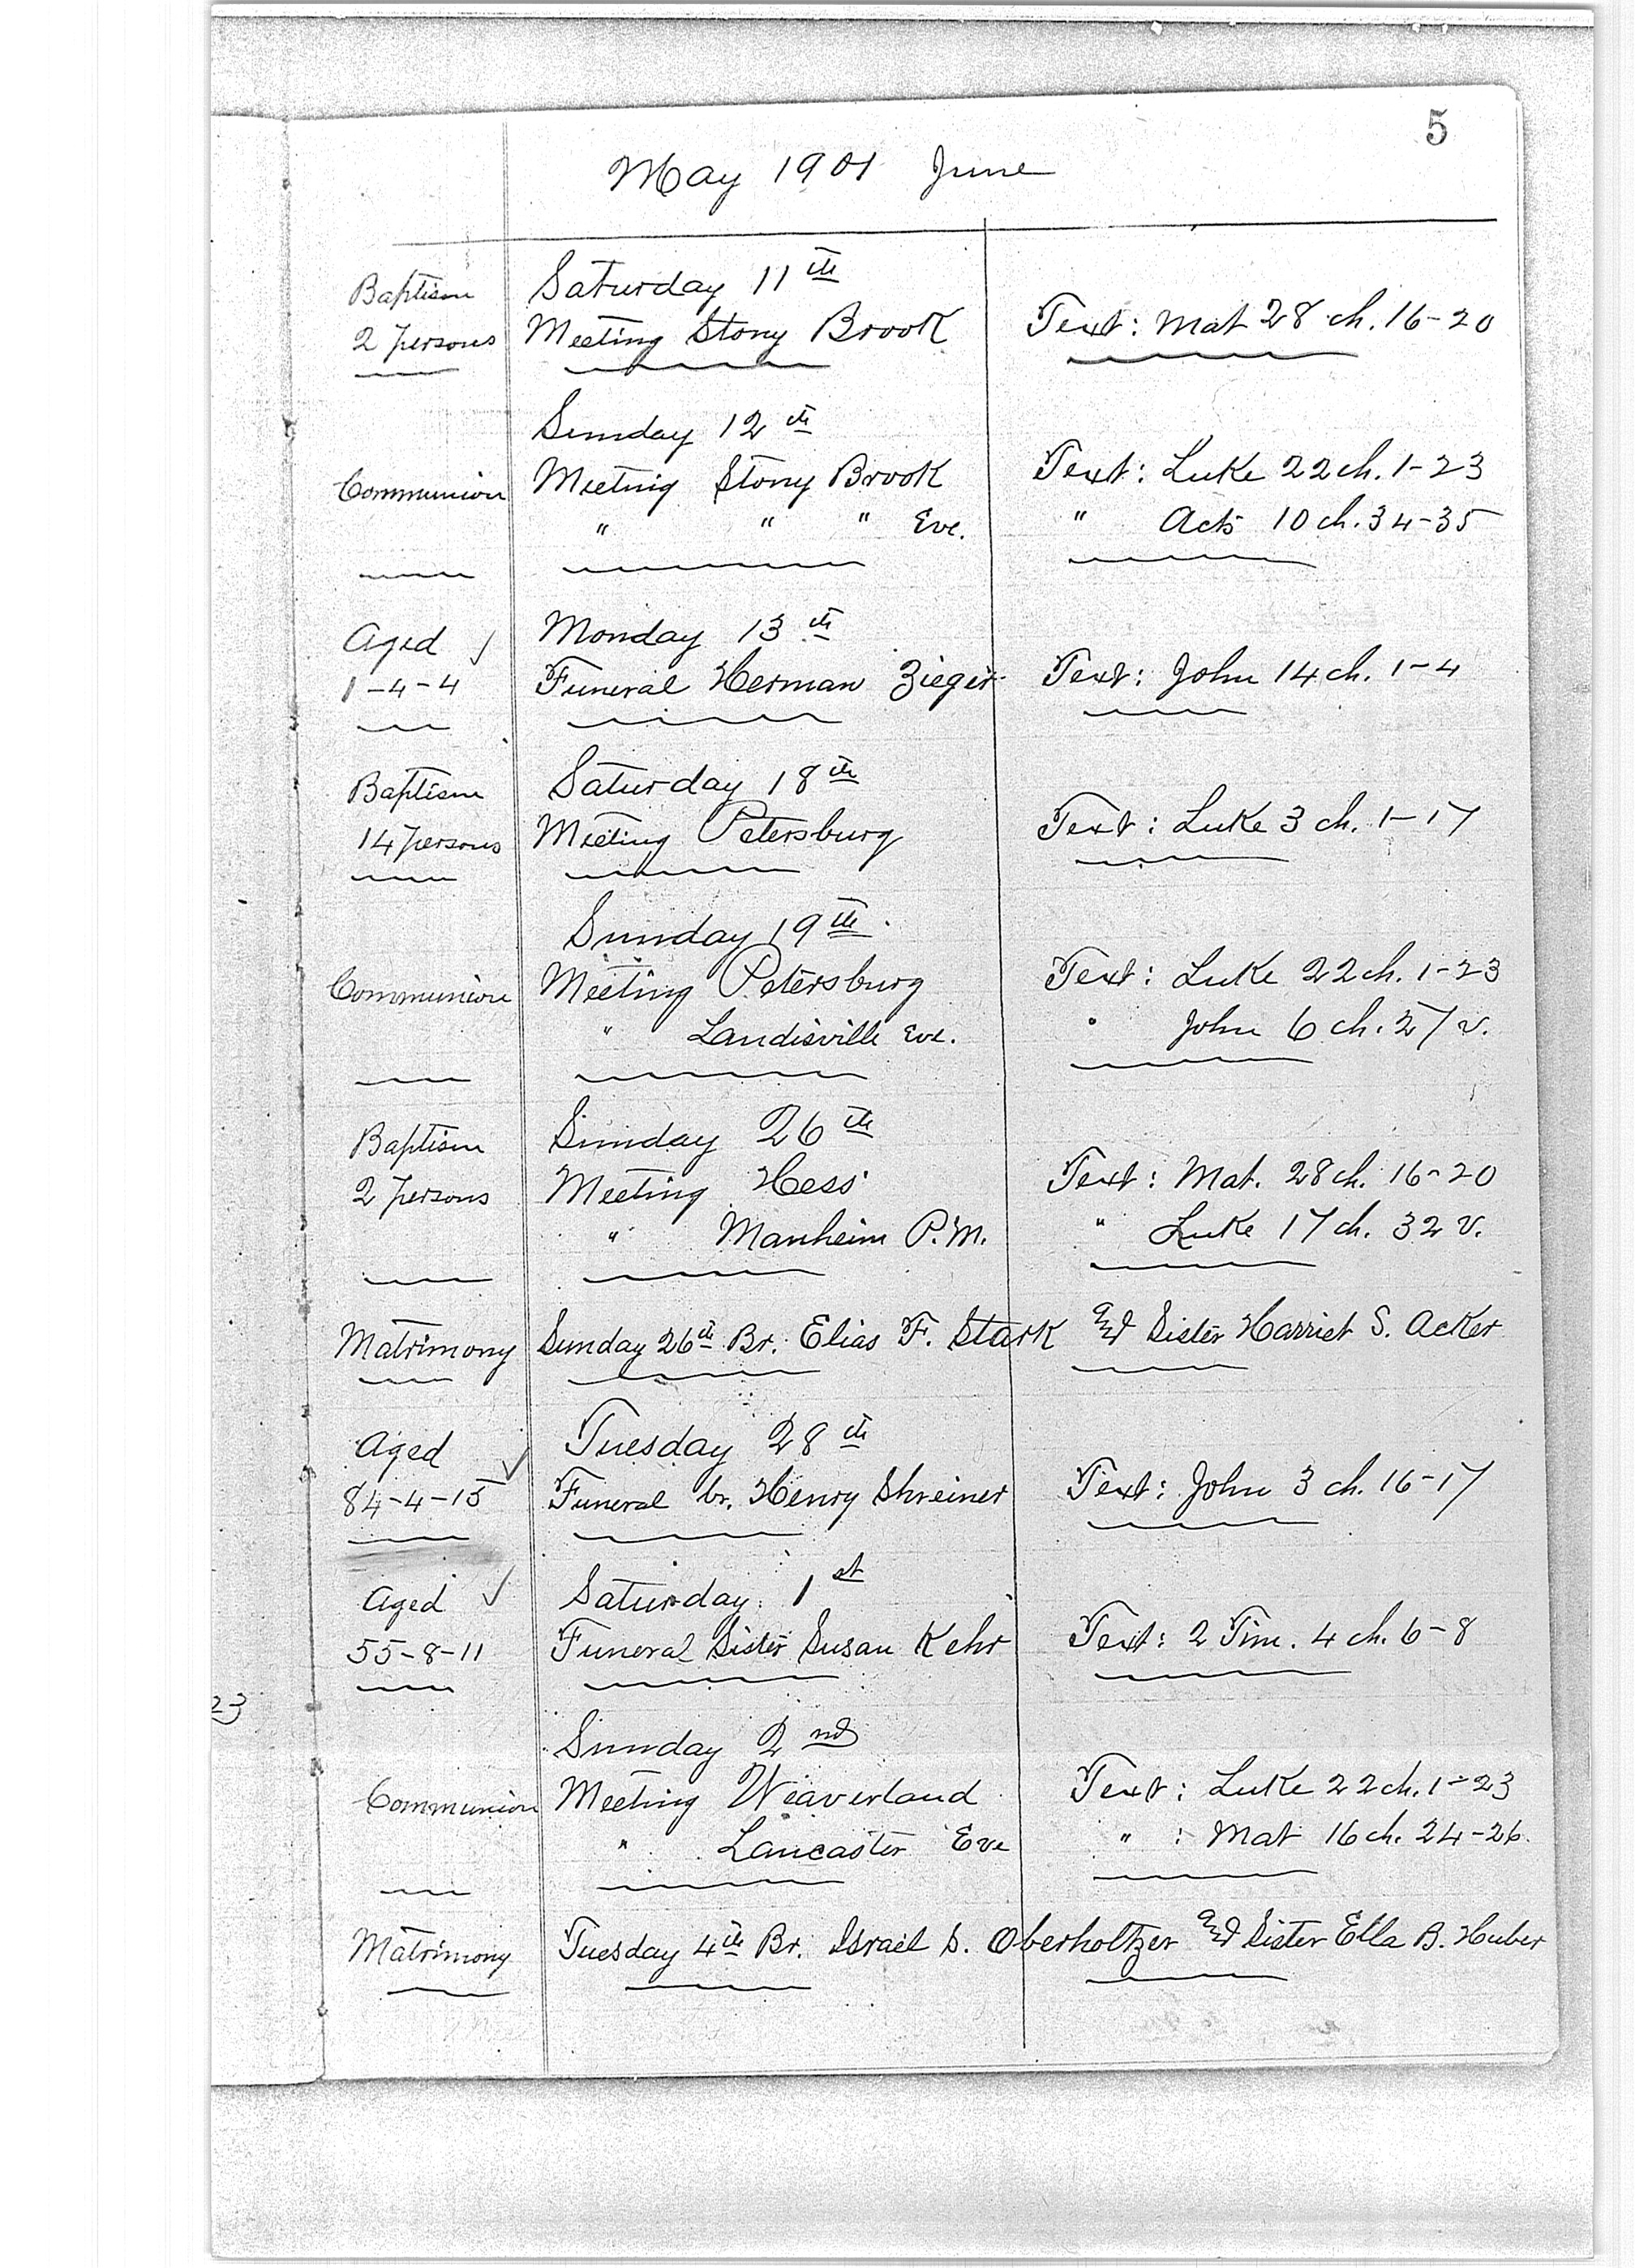 5
May 1901 June
Baptism Saturday 11th
2 persons Meeting Stony Brook Text: Mat 28 ch. 16-20
Sunday 12th
Communion Meeting Stony Brook Text: Luke 22 ch. 1-23
" " " Eve. " Acts 10 ch. 34-35
Aged ✓ Monday 13th
1-4-4 Funeral Herman Zieger Text: John 14 ch. 1-4
Baptism Saturday 18th
14 persons Meeting Petersburg Text: Luke 3 ch. 1-17
Sunday 19th.
Communion Meeting Petersburg Text: Luke 22 ch. 1-23
" Landisville Eve. " John 6 ch. 27 v.
Baptism Sunday 26th
2 persons Meeting Hess Text: Mat. 28 ch. 16-20
" Manheim P.M. " Luke 17 ch. 32 v.
Matrimony Sunday 26th Br. Elias F. Stark and Sister Harriet S. Acker
Aged ✓ Tuesday 28th
84-4-15 Funeral br. Henry Shreiner Text: John 3 ch. 16-17
Aged ✓ Saturday 1st
55-8-11 Funeral Sister Susan Kehr Text: 2 Tim. 4 ch. 6-8
23
Sunday 2nd
Communion Meeting Weaverland Text: Luke 22 ch. 1-23
" Lancaster Eve " : Mat 16 ch. 24-26.
Matrimony Tuesday 4th Br. Israel S. Oberholtzer and Sister Ella B. Huber